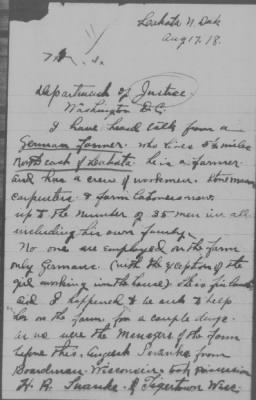 Lakota N Dak
Aug 17. 18.
Department of Justice
Washington D.C.
I have heard talk from a
German farmer. who lives 5½ miles
North east of Lakota he is a farmer
and has a crew of workmen.
carpenters & farm laborers now.
up to the number of 35 men in all
including his own family.
No one are employed on the farm
only Germans. (with the exception of the
girl working in the house) She is
and I happened to be asked to help
her on the farm for a couple days.
as we were the Managers of the farm
before this. August from
Boardman. Wisconsin. took possession
H. R. of Tigertown Wisc.